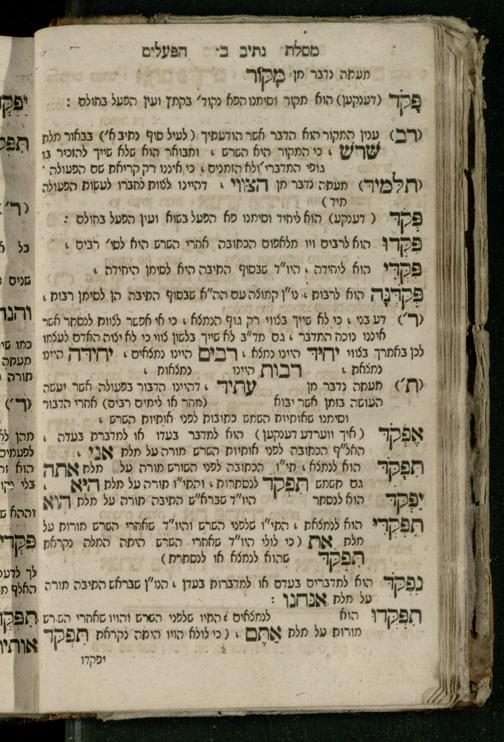 מסלת נתיב ב׳ הפעלים
מעתה נדבר מן מָקוֹר
פָּקֹד (דענקען) הוא מקור וסימנו הפא נקוד׳ בקמץ ועין הפעל בחולם :
(רב) ענין המקור הוא הדבר אשר הודעתיך (לעיל סוף נתיב א׳) בבאור מלת
שרש , כי המקור היא השרש , ומבואר הוא שלא שייך להזכיר בו
גופי המדברי׳ ולא הזמנים , כי איננו רק קריאת שם הפעולה :
(תלמיד) מעתה נדבר מן הצווי , דהיינו לצות לחברו לעשות הפעולה
מיד)
פְּקֹד (דענקע) הוא ליחיד וסימנו פא הפעל בשוא ועין הפעל בחולם :
פִּקְדוּ הוא לרבים ויו מלאפום הכתובה אחרי השרש היא לסי׳ רבים ,
פִּקְדִי הוא ליחידה , היו״ד שבסוף התיבה היא לסימן היחידה ,
פְּקֹדְנָה הוא לרבות , נו״ן קמוצה עם הה״א שבסוף התיבה הן לסימן רבות ,
(ר׳) דע בני , כי לא שייך בצווי רק גוף הנמצא , כי אי אפשר לצות לנסתר אשר
איננו נוכח המדבר , גם מד״ב לא שייך בלשון צווי כי לא יצוה האדם לעצמו
לכן באמרך בצווי יחיד היינו נמצא , רבים היינו נמצאים , יחידה היינו
נמצאת , רבות היינו נמצאות ,
(ת׳) מעתה נדבר מן עתיד , דהיינו הדבור בפעולה אשר יעשה
העושה בזמן אשר יבוא (מחר או לימים רבים) אחרי הדבור
וסימנו שאותיות השמש כתובות לפני אותיות השרש ,
אֶפְקֹד (איך ווערדע דענקען) הוא למדבר בעדו או למדברת בעדה ,
האל״ף הכתובה לפני אותיות השרש מורה על מלת אני ,
תִּפְקֹד הוא לנמצא , תי״ו הכתובה לפני השרש מורה על מלת אתה
גם תשמש תִפְקֹד לנסתרות , והתי״ו מורה על מלת היא ,
יִפְקֹד הוא לנסתר היו״ד שברא״ש התיבה מורה על מלת הוא
תִּפְקְדִי הוא לנמצאת , התי״ו שלפני השרש והיו״ד שאחרי השרש מורות על
מלת אַתְּ (כי לולי היו״ד שאחרי השרש היתה המלה נקראת
תִּפְקֹד שהוא לנמצא או לנסתרת)
נִפְקֹד הוא למדברים בעדם או למדברות בעדן , הנו״ן שבראש התיבה מורה
על מלת אנחנו :
תִּפְקְדוּ הוא לנמצאים , התיו שלפני השרש והויו שאחרי השרש
מורות על מלת אַתֶּם , (כי לולא הויו היתה נקראת תִּפְקֹד
יפקדו